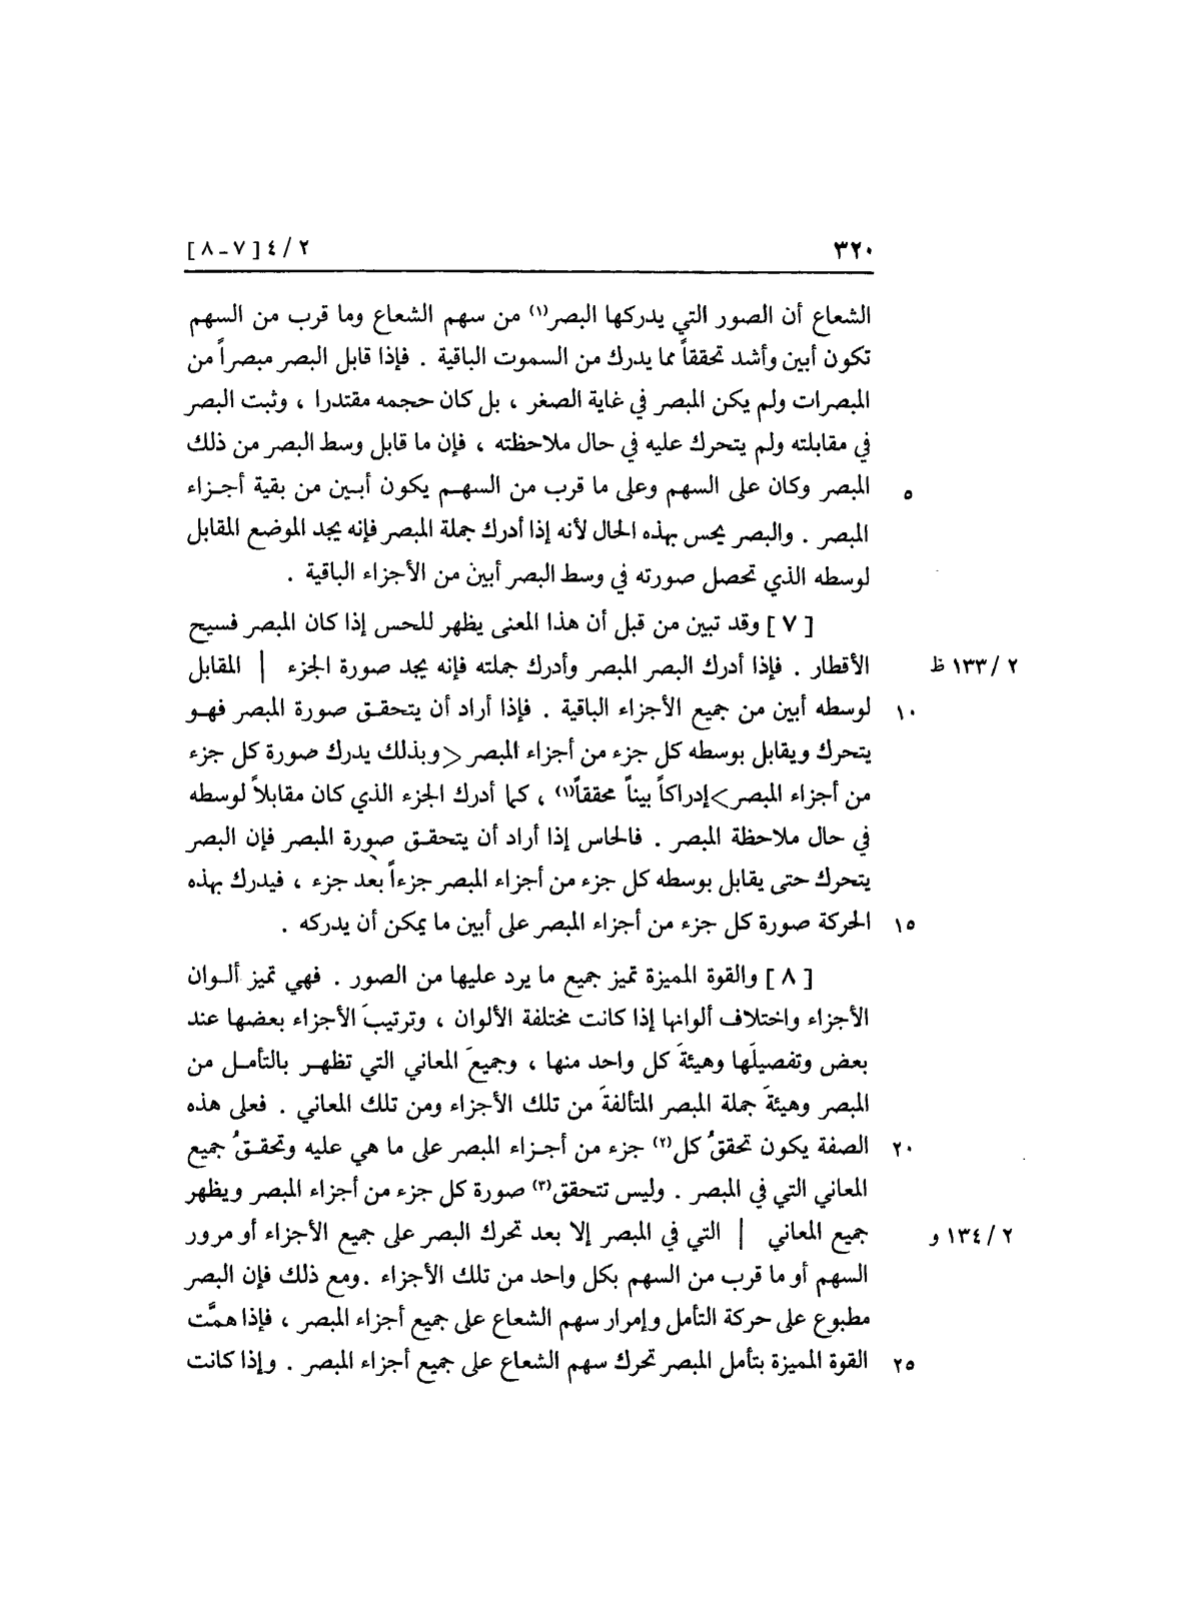 ٣٢٠ ٢ / ٤ [ ٧ – ٨ ]
الشعاع أن الصور التي يدركها البصر(١) من سهم الشعاع وما قرب من السهم
تكون أبين وأشد تحققاً مما يدرك من السموت الباقية . فإذا قابل البصر مبصراً من
المبصرات ولم يكن المبصر في غاية الصغر ، بل كان حجمه مقتدرا ، وثبت البصر
في مقابلته ولم يتحرك عليه في حال ملاحظته ، فإن ما قابل وسط البصر من ذلك
المبصر وكان على السهم وعلى ما قرب من السهم يكون أبين من بقية أجزاء ٥
المبصر . والبصر يحس بهذه الحال لأنه إذا أدرك جملة المبصر فإنه يجد الموضع المقابل
لوسطه الذي تحصل صورته في وسط البصر أبينَ من الأجزاء الباقية .
[ ٧ ] وقد تبين من قبل أن هذا المعنى يظهر للحس إذا كان المبصر فسيح
الأقطار . فإذا أدرك البصر المبصر وأدرك جملته فإنه يجد صورة الجزء | المقابل ٢ / ١٣٣ ظ
لوسطه أبين من جميع الأجزاء الباقية . فإذا أراد أن يتحقق صورة المبصر فهو ١٠
يتحرك ويقابل بوسطه كل جزء من أجزاء المبصر <وبذلك يدرك صورة كل جزء
من أجزاء المبصر> إدراكاً بيناً محققاً(١) ، كما أدرك الجزء الذي كان مقابلاً لوسطه
في حال ملاحظة المبصر . فالحاس إذا أراد أن يتحقق صورة المبصر فإن البصر
يتحرك حتى يقابل بوسطه كل جزء من أجزاء المبصر جزءاً بعد جزء ، فيدرك بهذه
الحركة صورة كل جزء من أجزاء المبصر على أبين ما يمكن أن يدركه . ١٥
[ ٨ ] والقوة المميزة تميز جميع ما يرد عليها من الصور . فهي تميز ألوان
الأجزاء واختلاف ألوانها إذا كانت مختلفة الألوان ، وترتيبَ الأجزاء بعضها عند
بعض وتفصيلَها وهيئةَ كل واحد منها ، وجميعَ المعاني التي تظهر بالتأمل من
المبصر وهيئةَ جملة المبصر المتألفةَ من تلك الأجزاء ومن تلك المعاني . فعلى هذه
الصفة يكون تحققُ كل(٢) جزء من أجزاء المبصر على ما هي عليه وتحققُ جميع ٢٠
المعاني التي في المبصر . وليس تتحقق(٣) صورة كل جزء من أجزاء المبصر ويظهر
جميع المعاني | التي في المبصر إلا بعد تحرك البصر على جميع الأجزاء أو مرور ٢ / ١٣٤ و
السهم أو ما قرب من السهم بكل واحد من تلك الأجزاء .ومع ذلك فإن البصر
مطبوع على حركة التأمل وإمرار سهم الشعاع على جميع أجزاء المبصر ، فإذا همَّت
القوة المميزة بتأمل المبصر تحرك سهم الشعاع على جميع أجزاء المبصر . وإذا كانت ٢٥